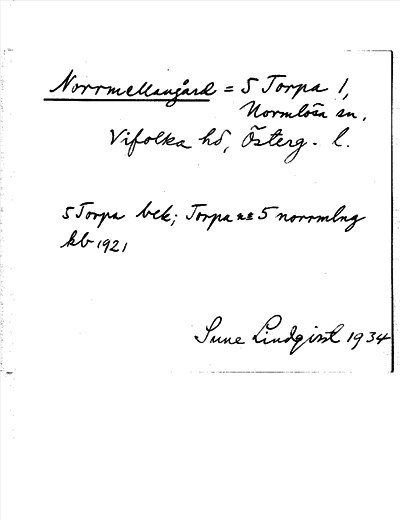 Norrmellangård = S Torpa 1,
Normlösa sn,
Vifolka hd, Österg. l.
S Torpa bek; Torpa 5 norrmlng
kb 1921
Sune Lindqvist 1934